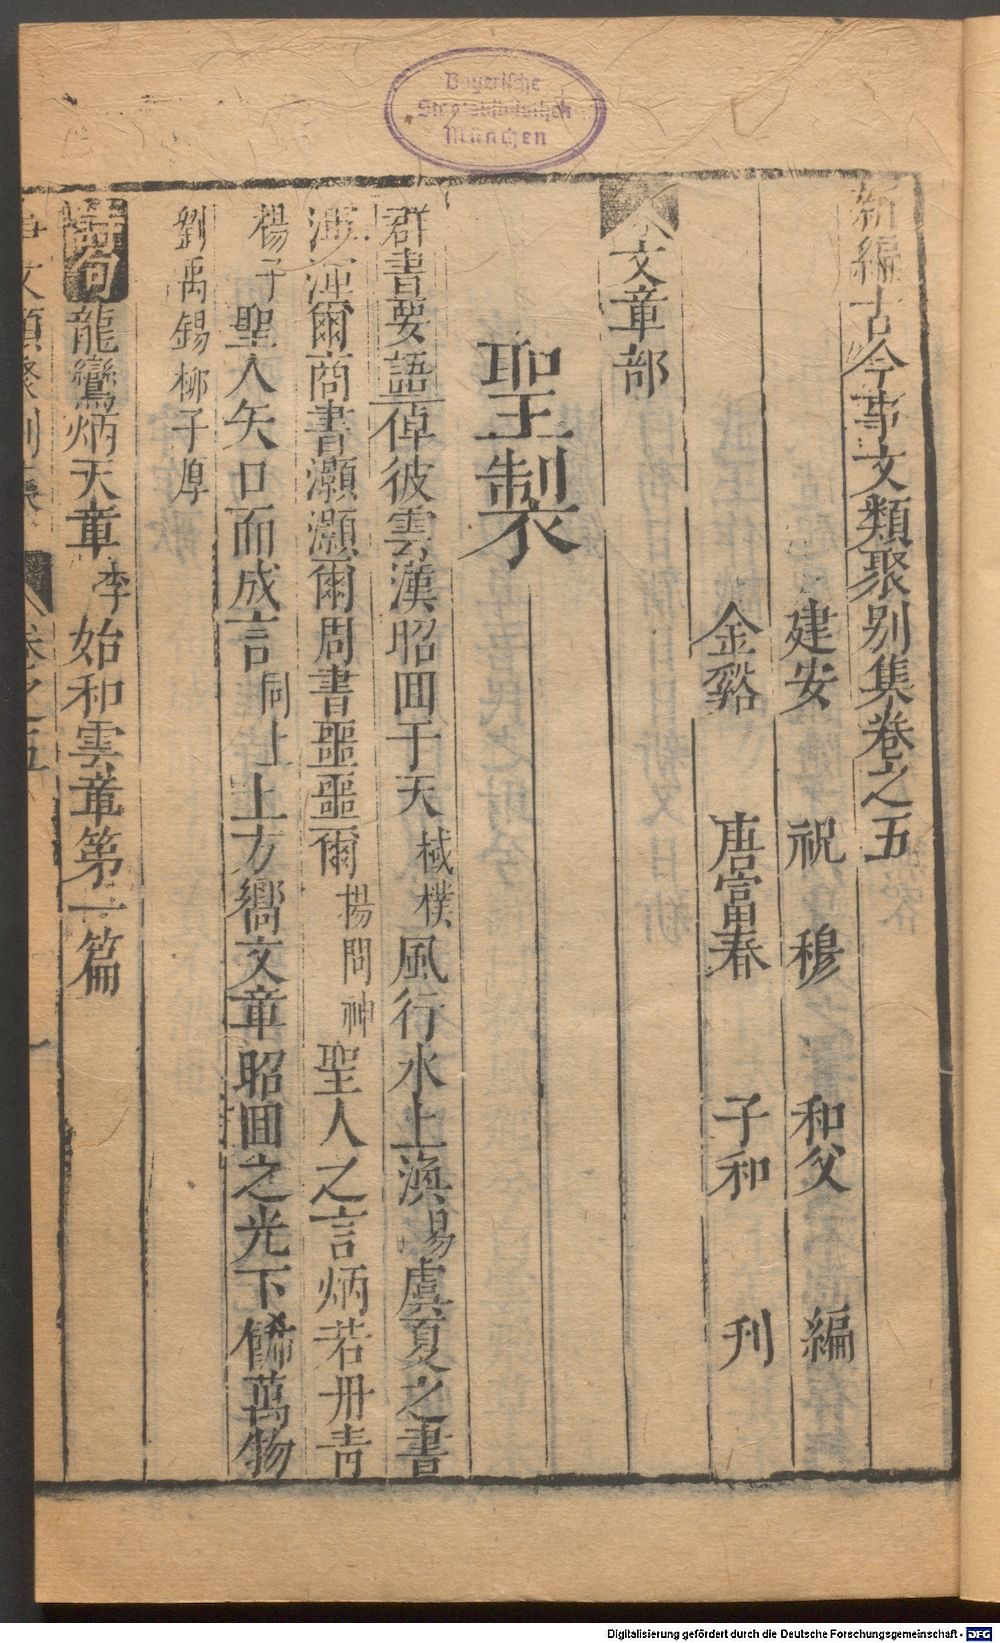 新編古今事文類聚别集卷之五
建安 祝 穆 和父 編
金谿 唐富春 子和 刋
文章部
聖製
群書要語倬彼雲漢昭囬于天棫樸風行水上渙易虞夏之書
渾渾爾商書灝灝爾周書噩噩爾揚問神聖人之言炳若丹青
楊子聖人矢口而成言同上上方嚮文章昭囬之光下餙萬物
劉禹錫柳子厚
詩句龍鸞炳天章李始和雲章第一篇
事文類聚別集 卷之五 一
Bayerische
Staatsbibliothek
München
Digitalisierung gefördert durch die Deutsche Forschungsgemeinschaft - DFG